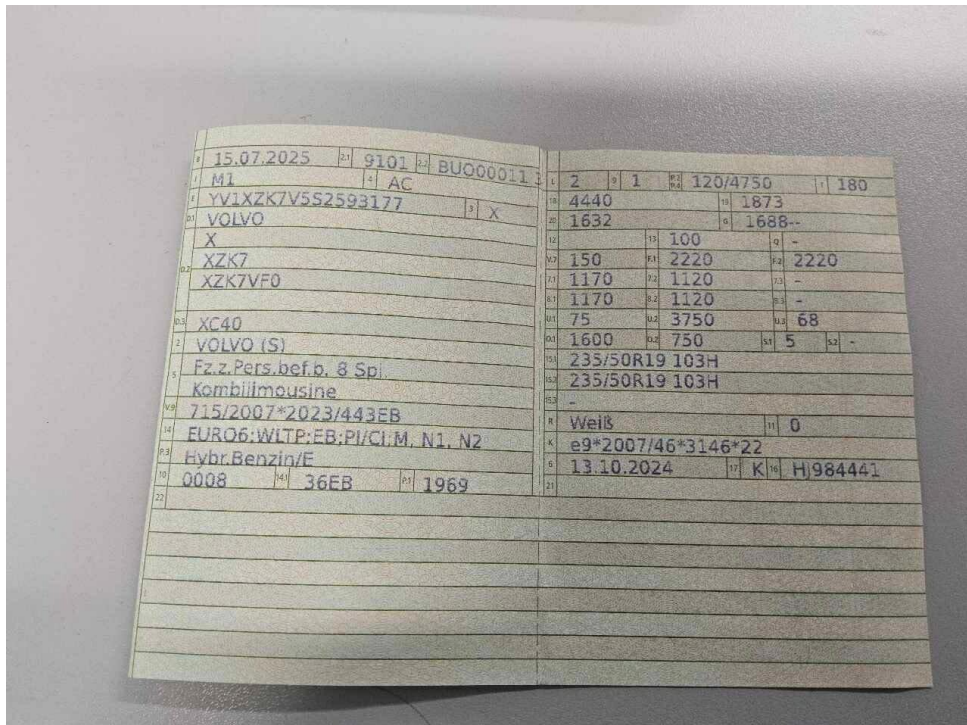 B 15.07.2025 2.1 9101 2.2 BUO000011 3
J M1 4 AC
E YV1XZK7V5S2593177 3 X
D.1 VOLVO
X
D.2 XZK7
XZK7VF0
D.3 XC40
2 VOLVO (S)
5 Fz.z.Pers.bef.b. 8 Spl.
Kombilimousine
V.9 715/2007*2023/443EB
14 EURO6;WLTP;EB;PI/CI;M, N1, N2
P.3 Hybr.Benzin/E
10 0008 14.1 36EB P.1 1969
22
L 2 9 1 P.2 P.4 120/4750 T 180
18 4440 19 1873
20 1632 G 1688--
12 13 100 Q -
V.7 150 F.1 2220 F.2 2220
7.1 1170 7.2 1120 7.3 -
8.1 1170 8.2 1120 8.3 -
U.1 75 U.2 3750 U.3 68
O.1 1600 O.2 750 S.1 5 S.2 -
15.1 235/50R19 103H
15.2 235/50R19 103H
15.3 -
R Weiß 11 0
K e9*2007/46*3146*22
6 13.10.2024 17 K 16 HJ984441
21